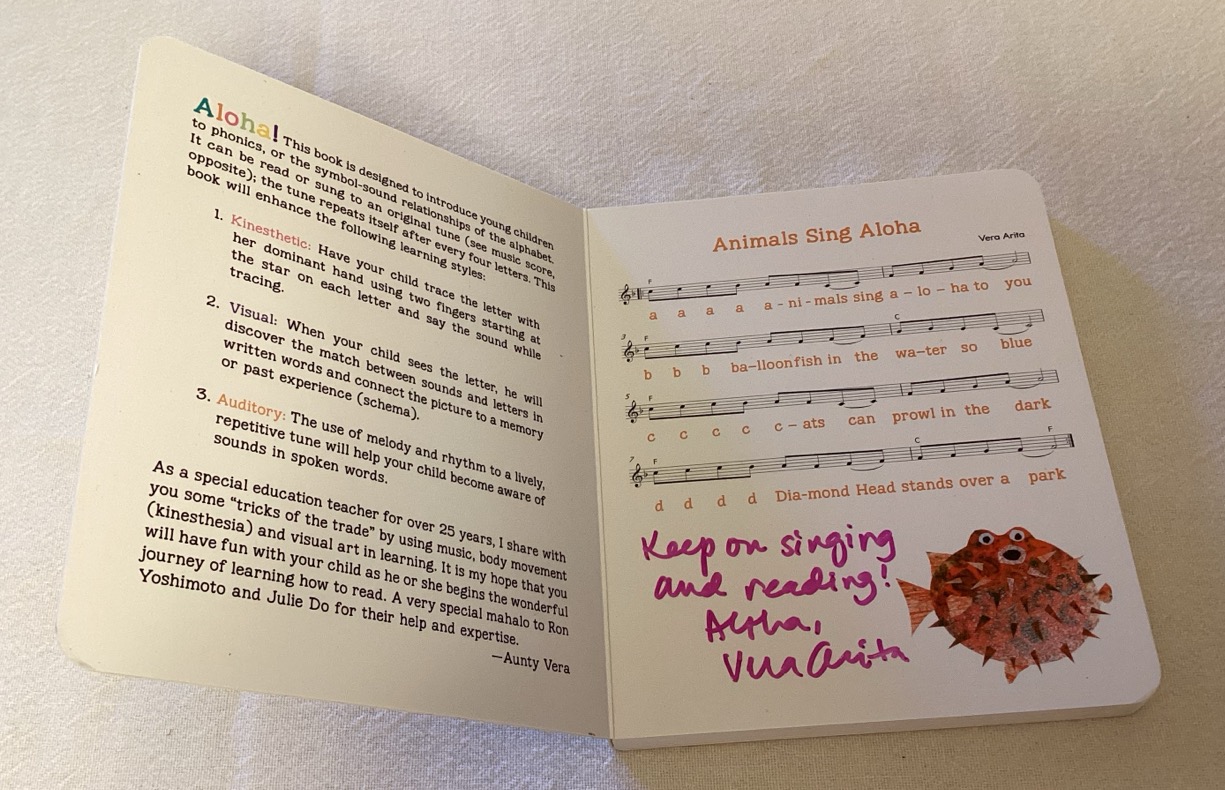 Aloha! This book is designed to introduce young children
to phonics, or the symbol-sound relationships of the alphabet.
It can be read or sung to an original tune (see music score,
opposite); the tune repeats itself after every four letters. This
book will enhance the following learning styles:
1. Kinesthetic: Have your child trace the letter with
her dominant hand using two fingers starting at
the star on each letter and say the sound while
tracing.
2. Visual: When your child sees the letter, he will
discover the match between sounds and letters in
written words and connect the picture to a memory
or past experience (schema).
3. Auditory: The use of melody and rhythm to a lively,
repetitive tune will help your child become aware of
sounds in spoken words.
As a special education teacher for over 25 years, I share with
you some “tricks of the trade” by using music, body movement
(kinesthesia) and visual art in learning. It is my hope that you
will have fun with your child as he or she begins the wonderful
journey of learning how to read. A very special mahalo to Ron
Yoshimoto and Julie Do for their help and expertise.
—Aunty Vera
Animals Sing Aloha
Vera Arita
F
a a a a a - ni - mals sing a – lo – ha to you
3 F C
b b b ba–lloonfish in the wa–ter so blue
5 F
c c c c c – ats can prowl in the dark
7 F C F
d d d d Dia-mond Head stands over a park
Keep on singing
and reading!
Aloha,
Vera Arita